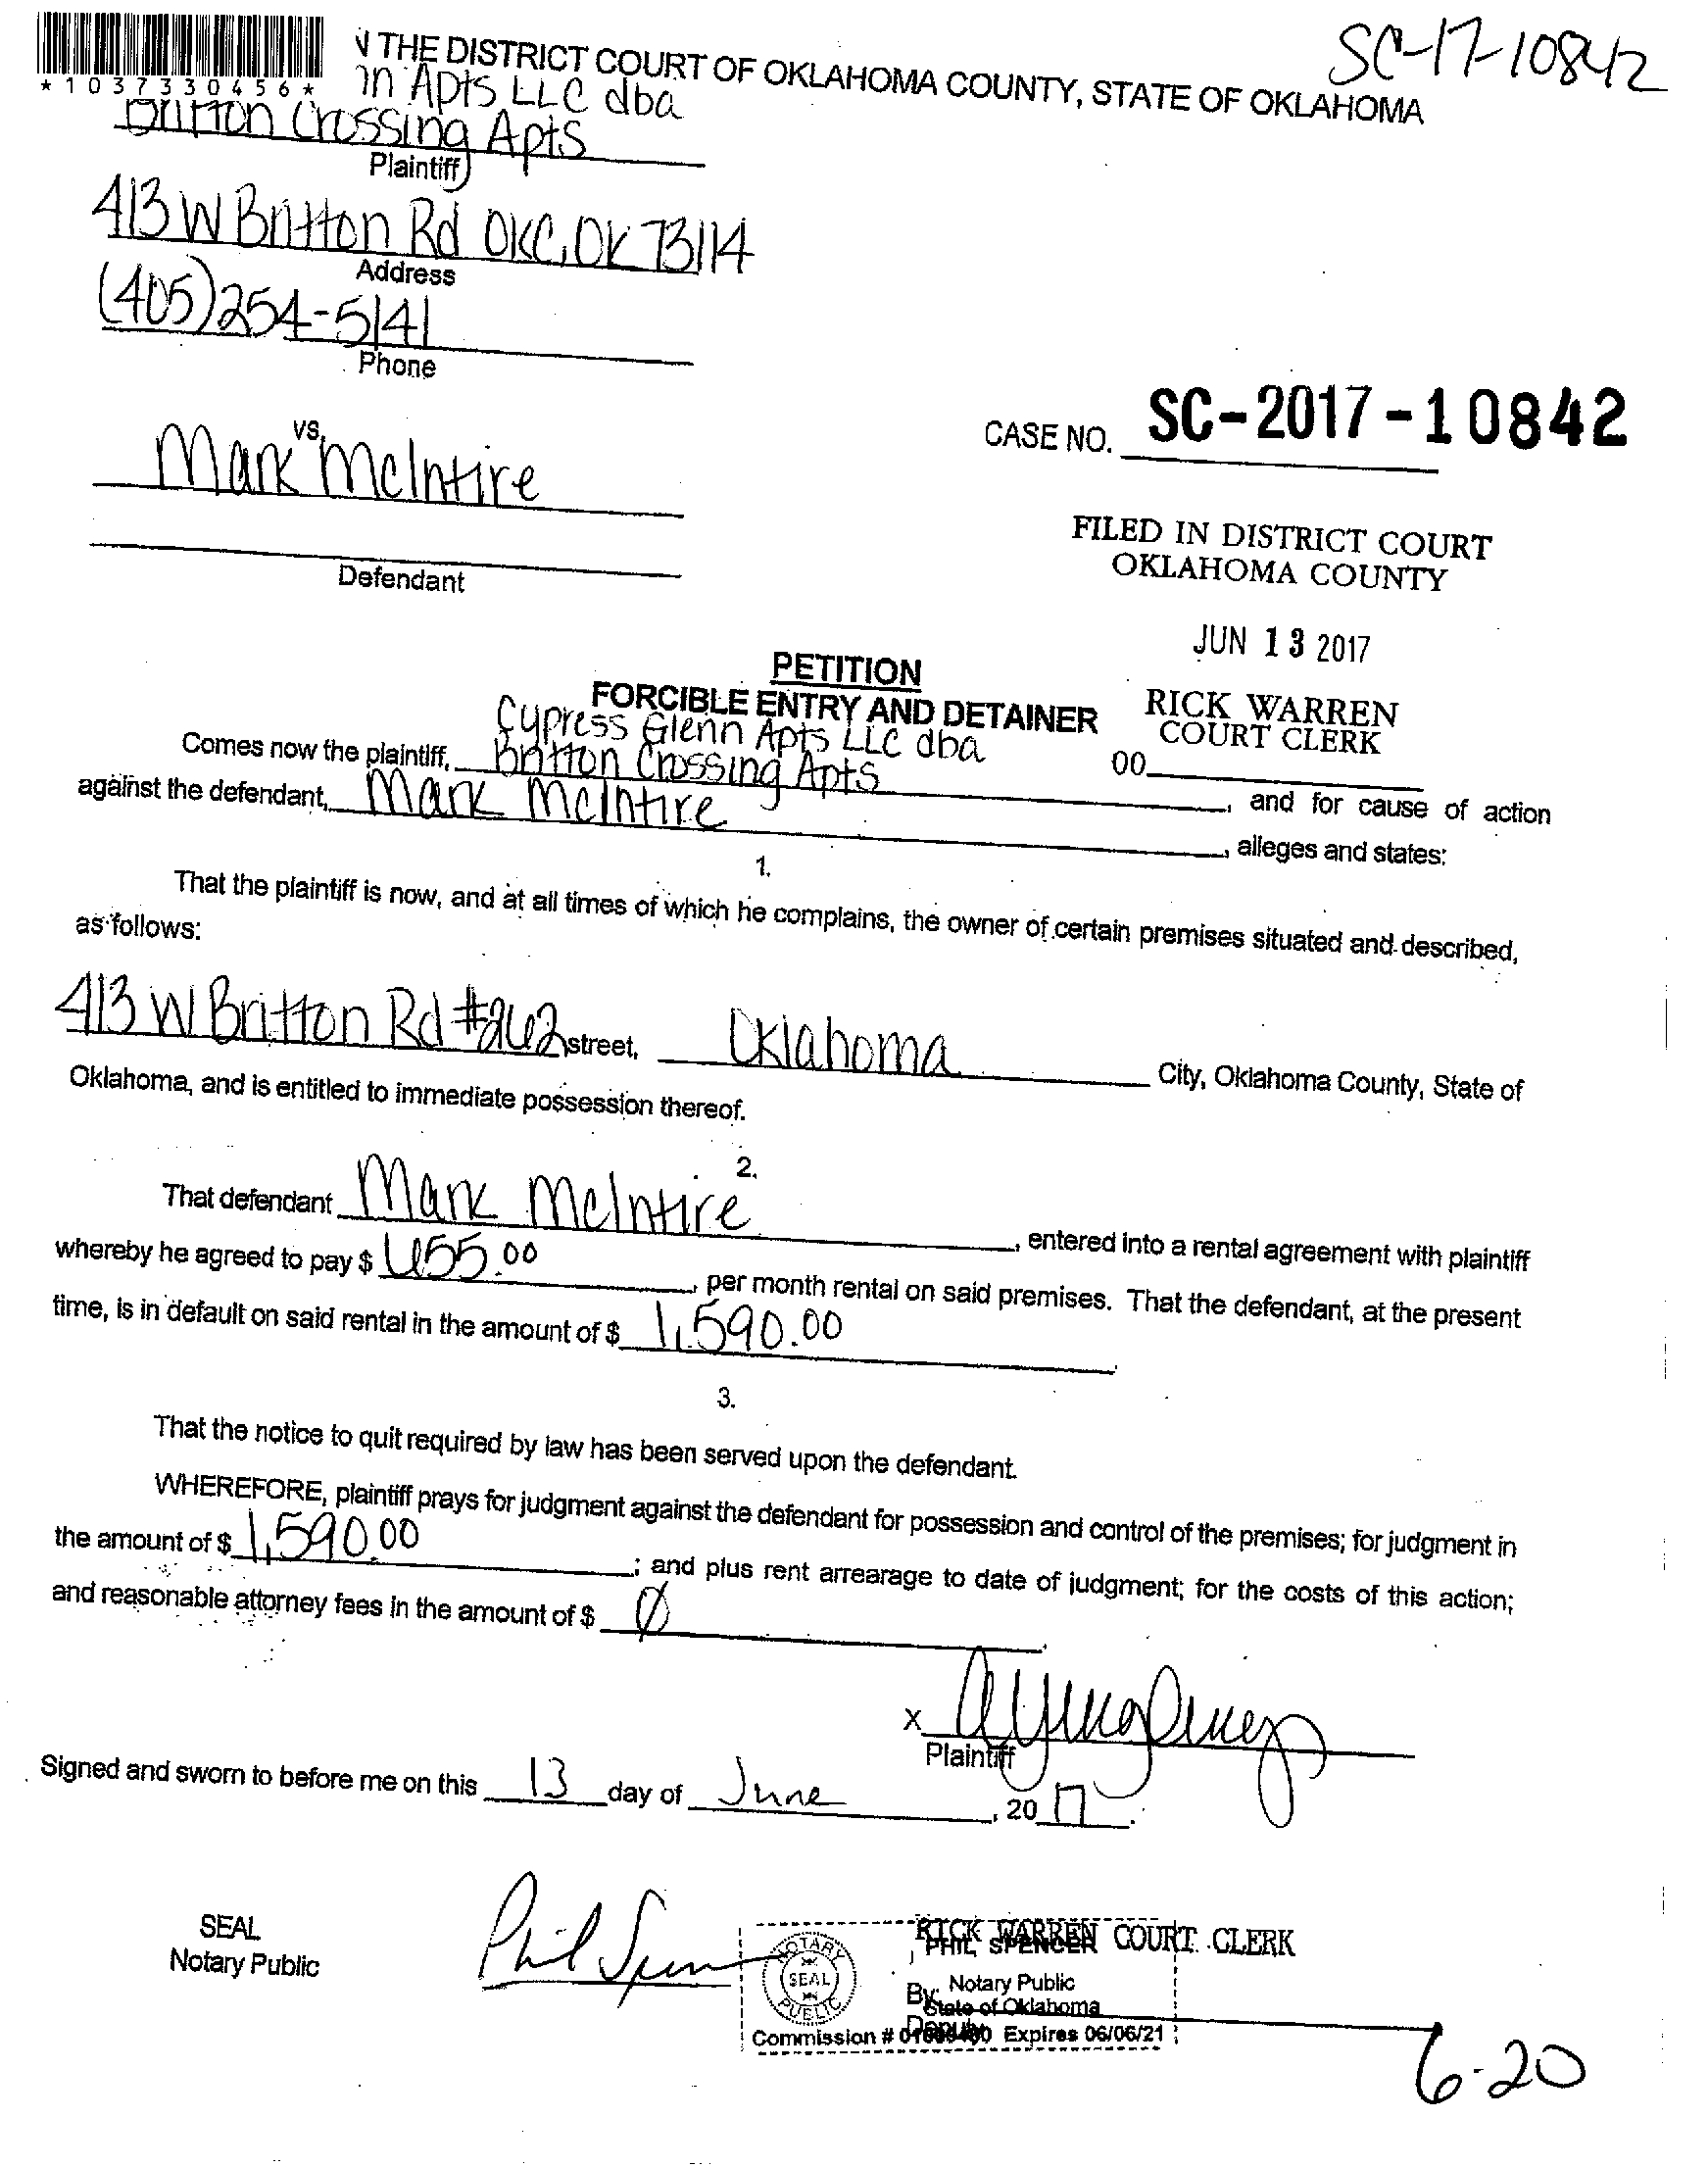 SC-17-10842
*1037330456*
THE DISTRICT COURT OF OKLAHOMA COUNTY, STATE OF OKLAHOMA
Apts LLC dba
Britton Crossing Apts
Plaintiff
413 W Britton Rd OKC, OK 73114
Address
(405)254-5141
Phone
vs.
Mark McIntire
CASE NO. SC-2017-10842
Defendant
FILED IN DISTRICT COURT
OKLAHOMA COUNTY
JUN 13 2017
RICK WARREN
COURT CLERK
00
PETITION
FORCIBLE ENTRY AND DETAINER
Cypress Glenn Apts LLC dba
Comes now the plaintiff, Britton Crossing Apts, and for cause of action
against the defendant, Mark McIntire, alleges and states:
1.
That the plaintiff is now, and at all times of which he complains, the owner of certain premises situated and described,
as follows:
413 W Britton Rd #262 street, Oklahoma City, Oklahoma County, State of
Oklahoma, and is entitled to immediate possession thereof.
2.
That defendant Mark McIntire, entered into a rental agreement with plaintiff
whereby he agreed to pay $ 655.00, per month rental on said premises. That the defendant, at the present
time, is in default on said rental in the amount of $ 1,590.00.
3.
That the notice to quit required by law has been served upon the defendant.
WHEREFORE, plaintiff prays for judgment against the defendant for possession and control of the premises; for judgment in
the amount of $ 1,590.00; and plus rent arrearage to date of judgment; for the costs of this action;
and reasonable attorney fees in the amount of $ Ø.
X
Plaintiff
Signed and sworn to before me on this 13 day of June, 2017.
SEAL
Notary Public
Phil Spencer
NOTARY
SEAL
PUBLIC
RICK WARREN COURT CLERK
PHIL SPENCER
Notary Public
By:
State of Oklahoma
Deputy
Commission # Expires 06/06/21
6-20